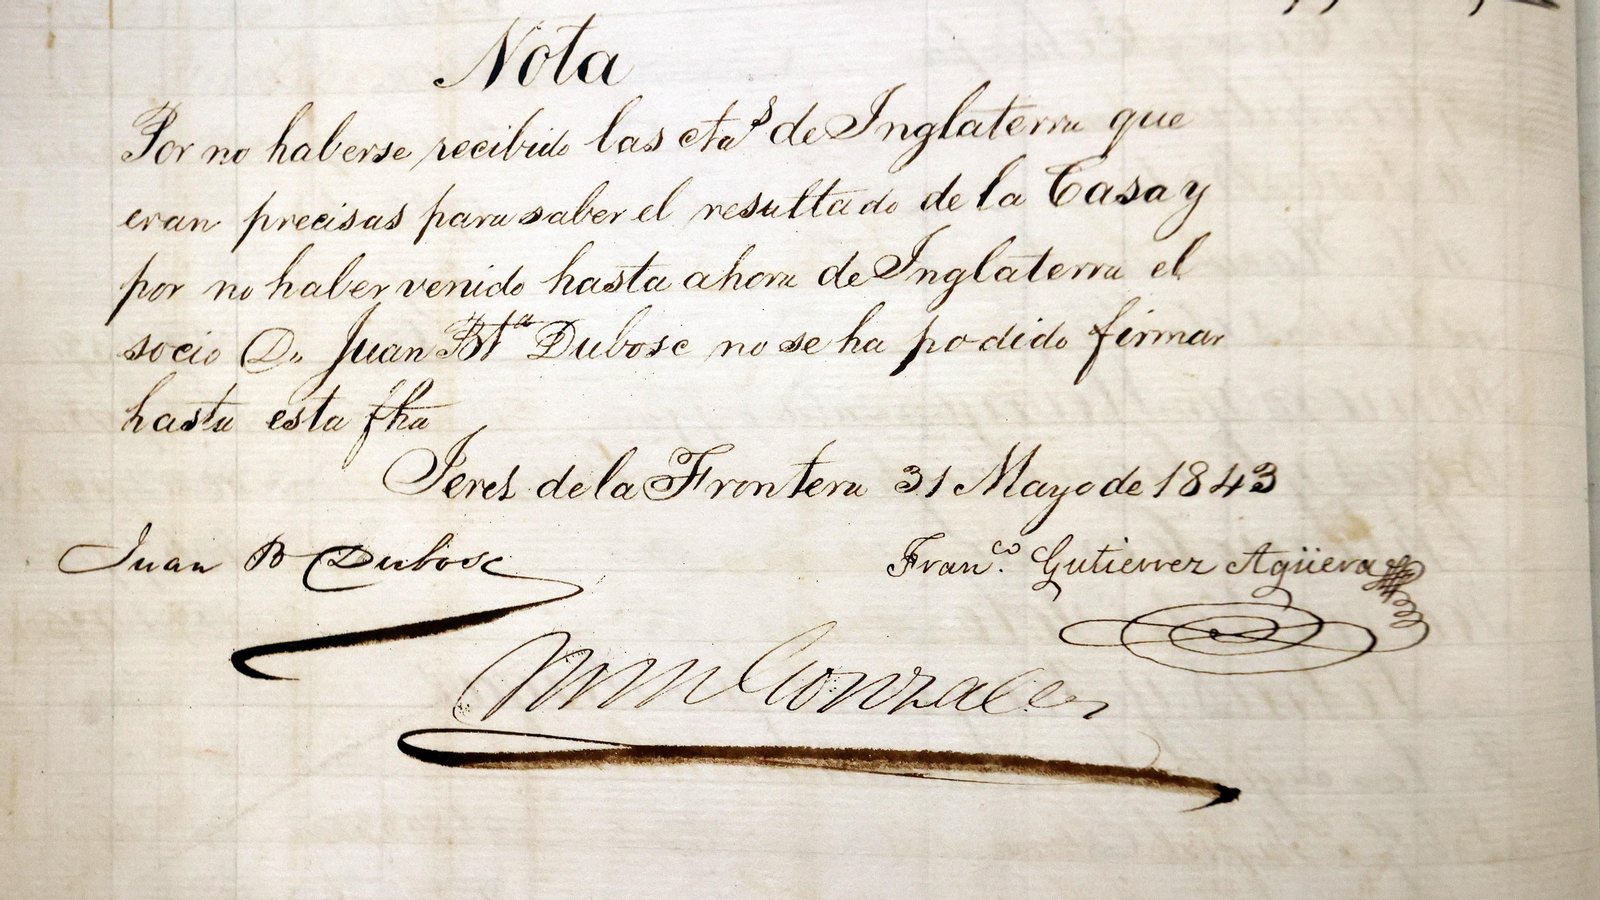 Nota
Por no haberse recibido las ctas de Inglaterra que
eran precisas para saber el resultado de la Casa y
por no haber venido hasta ahora de Inglaterra el
socio Dn Juan Bta Dubosc no se ha podido firmar
hasta esta fha
Jerez de la Frontera 31 Mayo de 1843
Juan B Dubosc
Franco. Gutierrez Agüera
Gonzalez